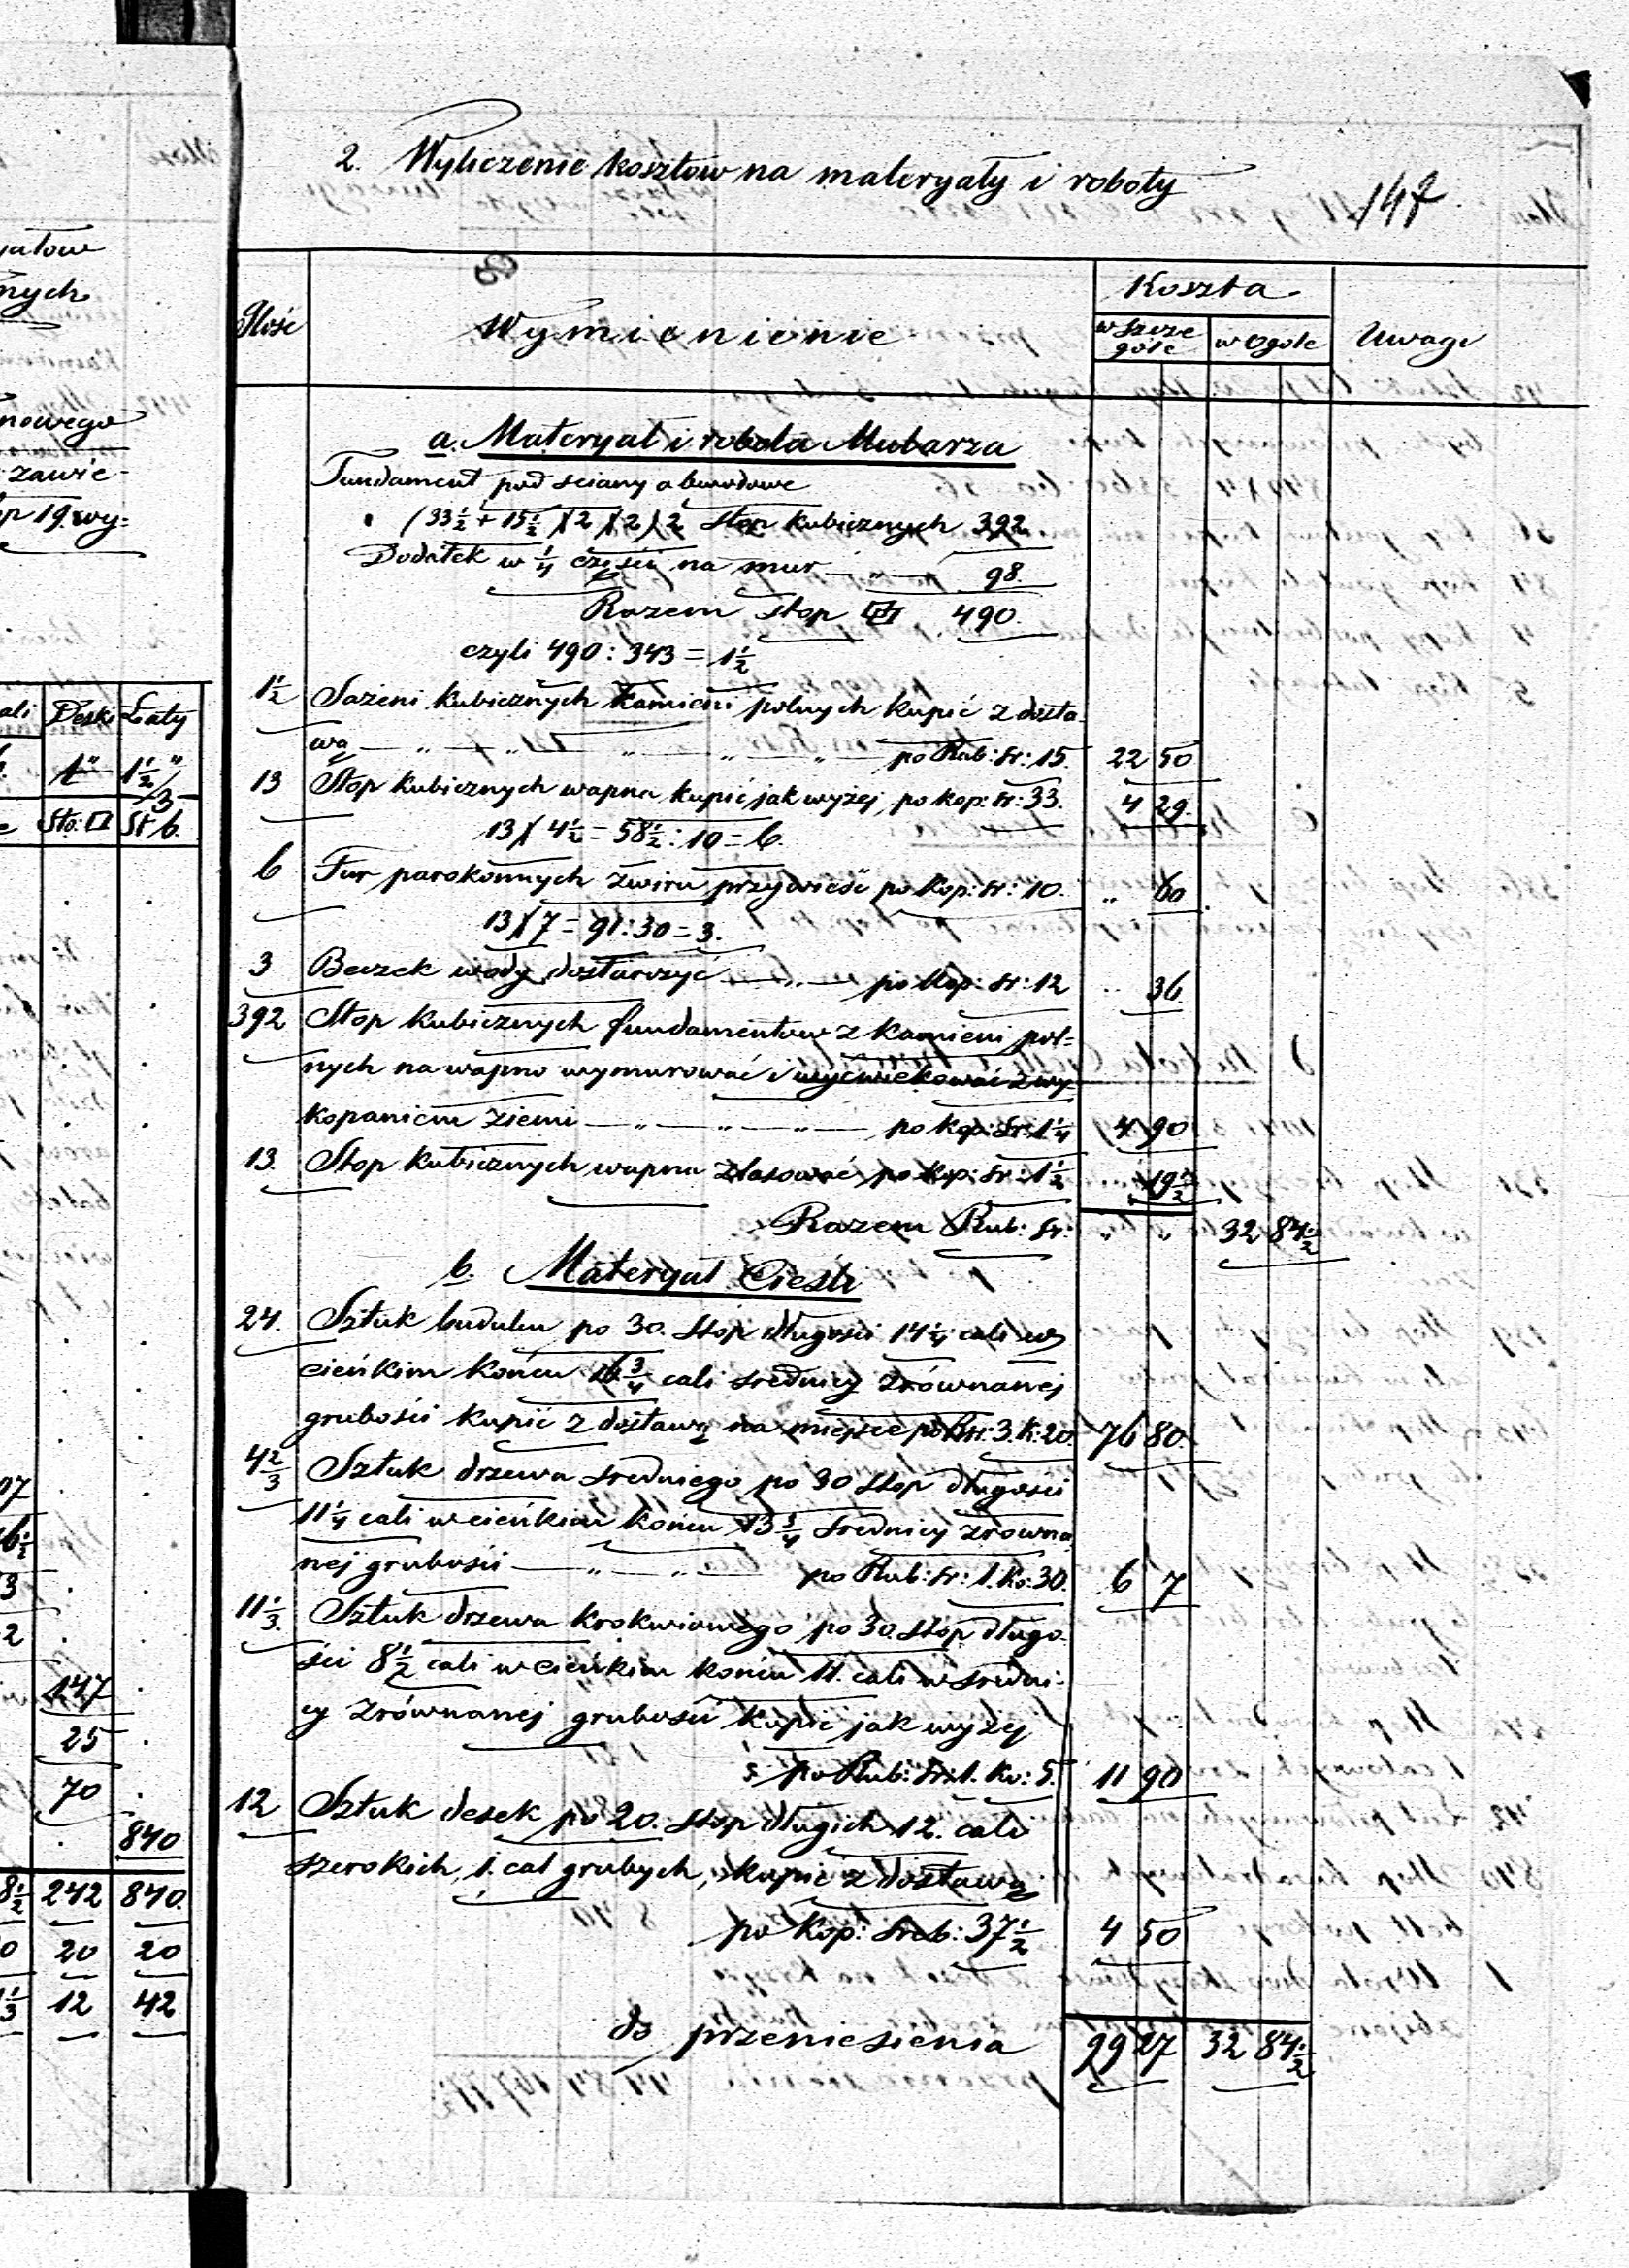 2. Wyliczenie kosztow na materyały i roboty
147
Ilość
Wymienienie
Koszta
w szcze
góle
w ogóle
Uwagi
a. Materyał i robota Mularza
Fundament pod sciany obwodowe
(33½ + 15½) 2 X 2 X 2 stop kubicznych 392
Dodatek w ¼ części na mur — „ — 98.
Razem stop 490.
czyli 490 : 343 = 1½
1½ Sażeni kubicznych kamieni polnych kupić z dosta-
wą — „ — „ — „ — „ — po Rub: sr: 15. 22 50
13 Stop kubicznych wapna kupić jak wyżej, po kop: sr: 33. 4 29.
13 X 4½ = 58½ : 10 = 6.
6 Fur parokonnych żwiru przywieść po Kop: sr: 10. „ 60
13 X 7 = 91 : 30 = 3.
3 Beczek wody dostarczyć — „ — po Kop: sr: 12 „ 36.
392 Stop kubicznych fundamentow z kamieni pol=
nych na wapno wymurować i wyćwiekować z wy-
kopaniem ziemi — „ — „ — „ — po kop: sr: 1¼ 4 90
13. Stop kubicznych wapna zlasować po kop: sr: 1½ 19½
Razem Rub: sr: „ „ 32 84½
b. Materyał Cieśli
24. Sztuk budulcu po 30. stop długości 14¼ cali w
cieńkim końcu 16¾ cali srednicy zrównanej
grubości kupić z dostawą na miejsce po Rsr: 3. k: 20. 76 80.
4⅔ Sztuk drzewa sredniego po 30 stop długości
11¼ cali w cieńkim końcu 13¾ srednicy zrowna
nej grubości — „ — „ — po Rub: sr: 1. ko: 30. 6 7
11⅓. Sztuk drzewa krokwiowego po 30. stop długo-
ści 8½ cali w cieńkim końcu 11. cali w sredni-
cy zrównanej grubości kupić jak wyżej
po Rub: sr: 1. ko: 5. 11 90
12 Sztuk desek po 20. stop długich 12. cali
szerokich, 1. cal grubych, kupić z dostawą
po Kop: sreb: 37½ 4 50
do przeniesienia 99 27 32 84½
yatow
nych
nowego
zawie-
19. wy=
ali Deski Łaty
1" 1½"/3
Sto: □ St b.
147
25
70
840
8½ 242 840.
0 20 20
⅓ 12 42